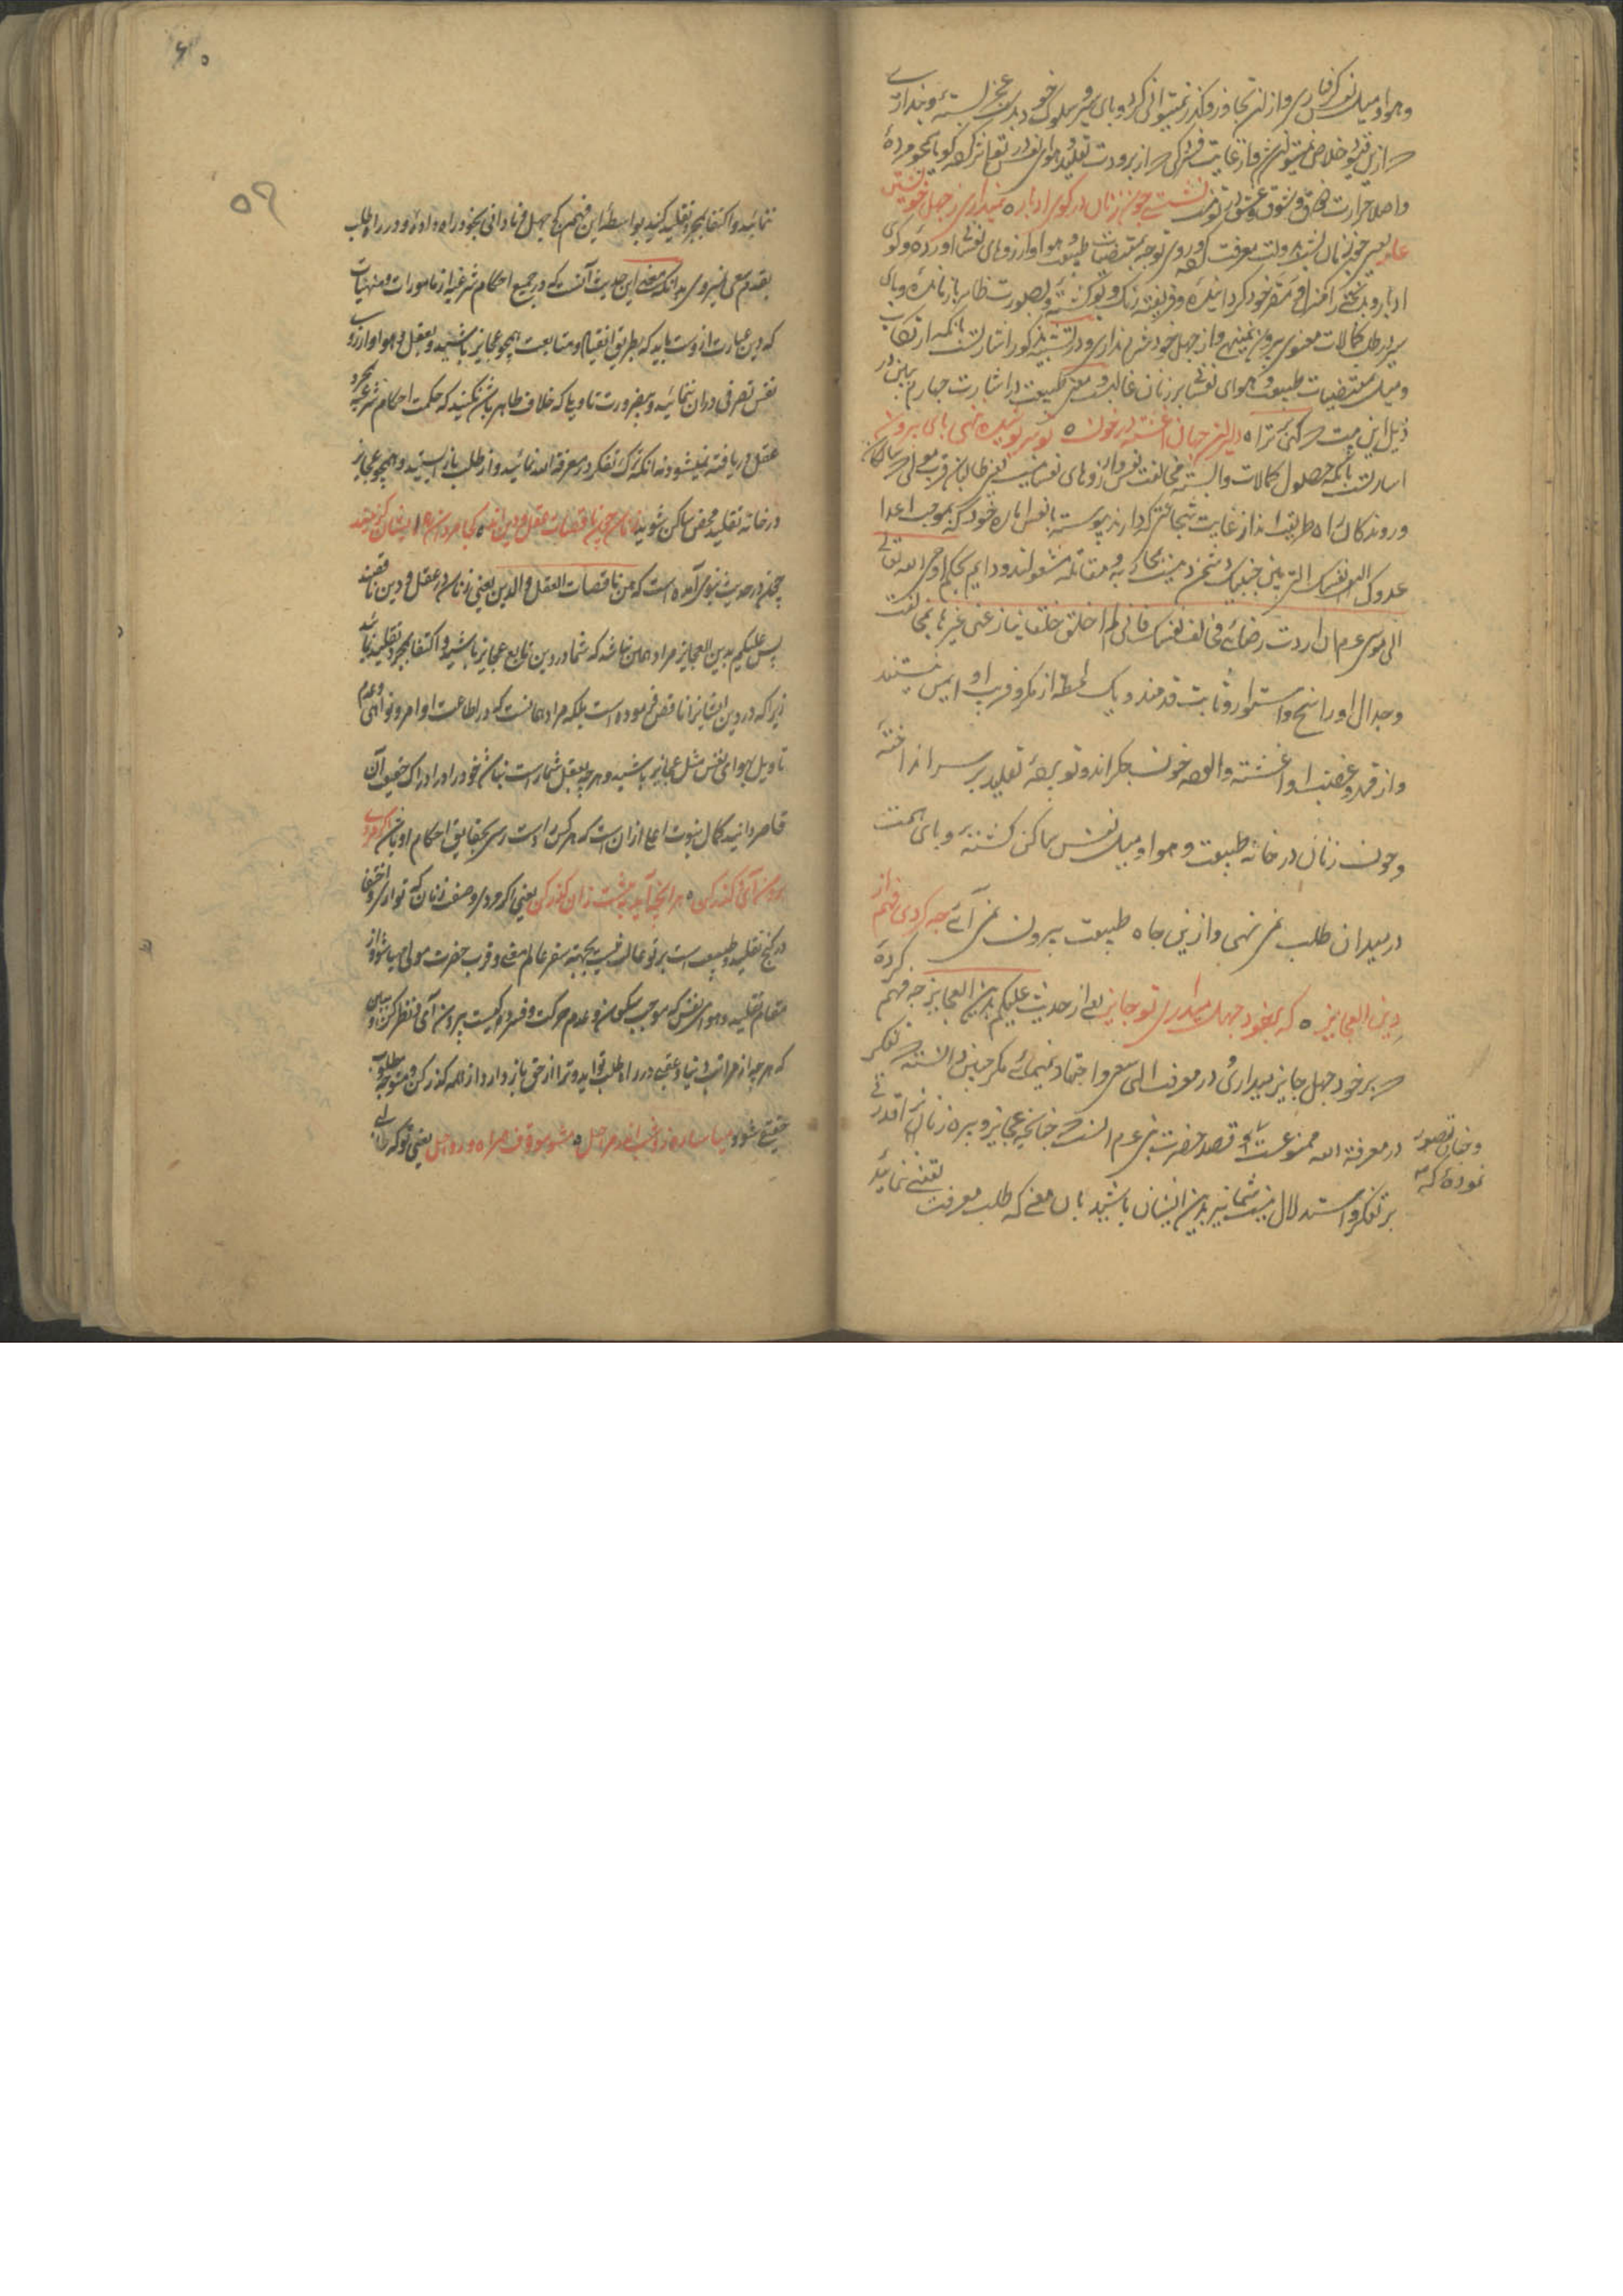 وهوا و میل نفس گرفتاری و از ان تجاوز و گذر نمیتوانی کرد و پای سیر و سلوک خود بدست عجز بسته و نمیداری
که ازین قید خلاص نمیتوان شد و از غایت فسردگی که از برودت تقلید و هوای نفس در تو اثر کرده گویا همچو مرده
و اصلا حرارت شوق و عشق در تو نیست نشستی چون زنان در کوی ادبار ه نمیداری ز جهل خویشتن
عار یعنی چون زنان پشت بدولت معرفت کرده و روی توجه بمقتضیات طبیعت و هوا و آرزوهای نفسانی آورده و کوی
ادبار و بدبختی را منزل و مقر خود گردانیده و فریفته رنگ و بوی گشته و بصورت ظاهر بازمانده و پای
سیر در طلب کمالات معنوی بیرون نمینهی و از جهل خود شرم نداری و در تشبیه مذکور اشارتست بانکه ارتکاب
و میل مقتضیات طبیعت و هوای نفسانی بر زنان غالب
ذیل این بیت که ه دلیران جهان آغشته در خون ه تو سرپوشیده ننهی پای بیرون
اشارتست بانکه حصول کمالات وابسته مخالفت نفس و آرزوهای نفسانیست یعنی طالبان قرب مولی و سالکان
و روندگان راه طریقت از غایت شجاعتی که دارند پیوسته با نفس اماره خود که بموجب اعدا
عدوک نفسک التی بین جنبیک دشمن‌ترین دشمنست بمحاربه و مقاتله مشغولند و دایم بحکم اوحی الله تعالی
الی موسی عم ان اردت رضائی فخالف نفسک فانی لم اخلق خلقا ینازعنی غیرها بمخالفت
و جدال او راسخ و استوار و ثابت قدمند و یک لحظه از مکر و فریب او ایمن نیستند
و از قهر و غضب او آغشته و آلوده خون جگراند و تو برقع تقلید بر سر انداخته
و چون زنان در خانه طبیعت و هوا و میل نفس ساکن گشته و پای همت
در میدان طلب نمی نهی و ازین چاه طبیعت بیرون نمی آئی چه کردی فهم از
دین العجایز ه که بر خود جهل میداری تو جایز یعنی از حدیث علیکم بدین العجایز چه فهم کرده
که بر خود جهل جایز میداری و در معرفت الهی سعی و اجتهاد نمینمائی مگر چنین دانسته که تفکر
در معرفة الله ممنوعست و قصد حضرت نبی عم انست که چنانچه عجایز و پیره زنان را قدرتی
بر تفکر و استدلال نیست شما نیز بدین ایشان باشید بان معنی که طلب معرفت یقینی ننمائید
و چنان تصور
نموده که
۵۹
۶۰
ننمائید و اکتفا بمجرد تقلید کنید بواسطه این فهم کج جهل و نادانی بخود راه داده و در راه طلب
بقدم سعی نمیروی بدانکه معنی این حدیث آنست که در جمیع احکام شرعیه از مامورات و منهیات
که دین عبارت ازوست باید که بطریق انقیاد و متابعت همچو عجایز باشید و بعقل و هوا و آرزوی
نفس تصرفی دران ننمائید و بی ضرورت تاویلها که خلاف ظاهر باشد نکنید که حکمت احکام شرعیه بمجرد
عقل دریافته نمیشود نه انکه ترک تفکر در معرفة الله نمائید و از طلب باز ایستید و همچو عجایز
در خانه تقلید محض ساکن شوید زنان چون ناقصات عقل و دین اند ه چرا مردان ره ایشان گزینند
چون در حدیث نبوی آمده است که هن ناقصات العقل و الدین یعنی زنان در عقل و دین ناقصند
پس علیکم بدین العجایز مراد همان نباشد که شما در دین تابع عجایز باشید و اکتفا بمجرد تقلید نمائید
زیرا که در دین ایشانرا ناقص فرموده است بلکه مراد همانست که در اطاعت اوامر و نواهی و عدم
تاویل بهوای نفس مثل عجایز باشید و هرچه بعقل شما راست نباشد خود را در ادراک حقیقت آن
قاصر دانید کمال نبوت اعلی از آن است که هر کس را دست رسی بحقایق احکام او باشد اگر مردی
برون آی و گذر کن ه هر آنچ آید بپشت زان گذر کن یعنی اگر مردی و صفت زنان که تواری و اختفا
در کنج تقلید و طبیعت است بر تو غالب نیست بجهة سفر عالم معنی و قرب حضرت مولی میباش و از
مقام تقلید و هوای نفس که موجب سکون و عدم حرکت و فسردگیست بیرون آی و نظر کن
که هرچه از مراتب دنیا و عقبی در راه طلب تو آید و ترا از حق باز دارد از همه گذر کن و متوجه مطلوب
حقیقی شو و میاسا روز و شب اندر مراحل ه مشو موقوف همراه و رواحل یعنی تو که طالب